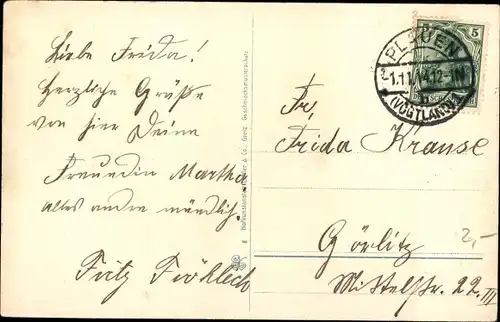 Liebe Frida!
Herzliche Grüße
von hier Deine
Freundin Martha.
alles andre mündlich.
Fritz Fröhlich
PLAUEN
1.11.14.12-1N
b
(VOGTLAND)
5
Fr,
Frida Krause
Görlitz
Mittelstr. 22 III
2,-
& Co., Greiz. Geschmacksmusterschutz